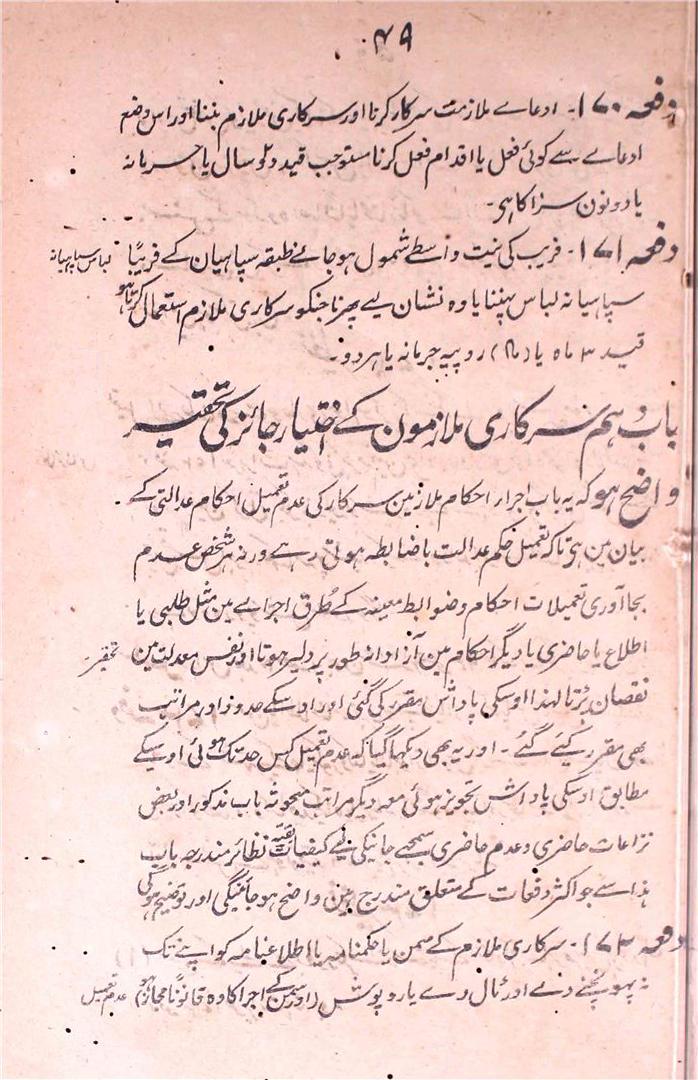 ۴۹
دفعہ ۱۷۰۔ ادعاے ملازمت سرکار کرنا اور سرکاری ملازم بننا اور اس وضع
ادعاے سے کوئی فعل یا اقدام فعل کرنا مستوجب قید دو سال یا جرمانہ
یا دونون سزا کا ہی۔
دفعہ ۱۷۱۔ فریب کی نیت واسطے شمول ہو جانے طبقہ سپاہیان کے فریبًا لباس سپاہیانہ
سپاہیانہ لباس پہننا یا وہ نشان لیے پھرنا جنکو سرکاری ملازم استعمال کرتا ہو
قید ۳ ماہ یا روپیہ جرمانہ یا ہر دو۔
باب دہم سرکاری ملازمون کے اختیار جائز کی تحقیر
واضح ہو کہ یہ باب اجراء احکام ملازمین سرکار کی عدم تعمیل احکام عدالتی کے
بیان مین ہی تاکہ تعمیل حکم عدالت باضابطہ ہوتی رہے ورنہ ہر شخص عدم
بجا آوری تعمیلات احکام و ضوابط معینہ کے طُرق اجراے مین مثل طلبی یا
اطلاع یا حاضری یا دیگر احکام مین آزادانہ طور پر دلیر ہوتا اور نفس معدلت مین تحقیر۔
نقصان پڑتا لہذا اوسکی پاداش مقرر کی گئی اور اوسکے حدود اور مراتب
بھی مقرر کیئے گئے۔ اور یہ بھی دیکھا گیا کہ عدم تعمیل کس حد تک ہوئی اوسیکے
مطابق اوسکی پاداش تجویز ہوئی معہ دیگر مراتب مبحوثہ باب مذکور اور بعض
نزاعات حاضری و عدم حاضری سمجھے جانیکی لیے کیفیات بقیہ نظائر مندرجہ باب
ہذا سے جو اکثر دفعات کے متعلق مندرج ہین واضح ہو جائینگی اور توضیح ہوگی
دفعہ ۱۷۲۔ سرکاری ملازم کے سمن یا حکمنامہ یا اطلاعنامہ کو اپنے تک
نہ پہونچنے دے اور ٹال دے یا روپوش (اور سمن کے اجرا کا وہ قانونًا مجاز ہو) عدم تعمیل